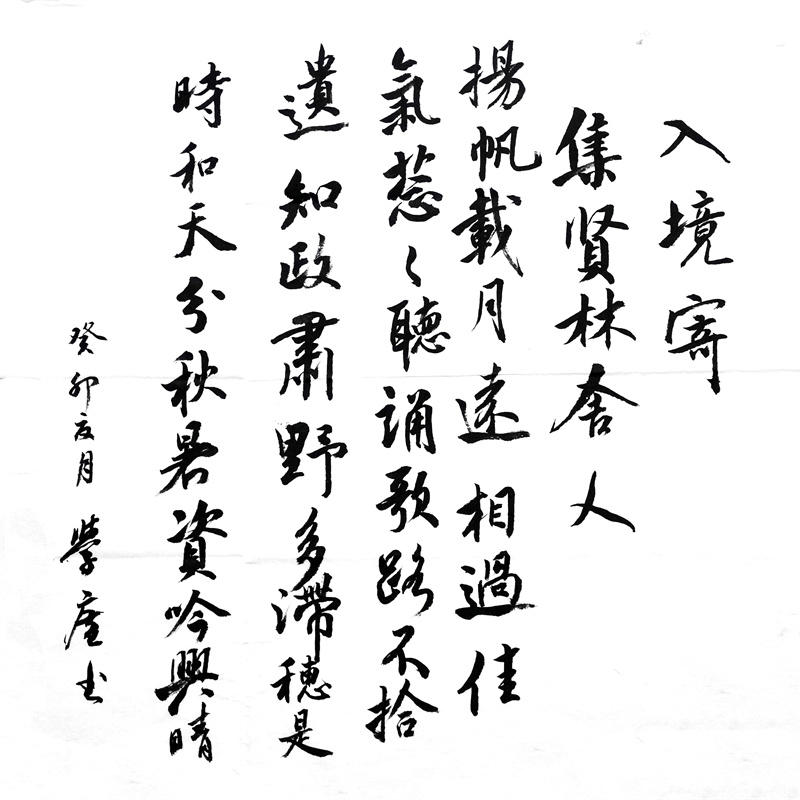 入境寄
集賢林舍人
揚帆載月遠相過佳
氣葱〻聽誦歌路不拾
遺知政肅野多滯穗是
時和天分秋暑資吟興晴
癸卯夏月 學庵书